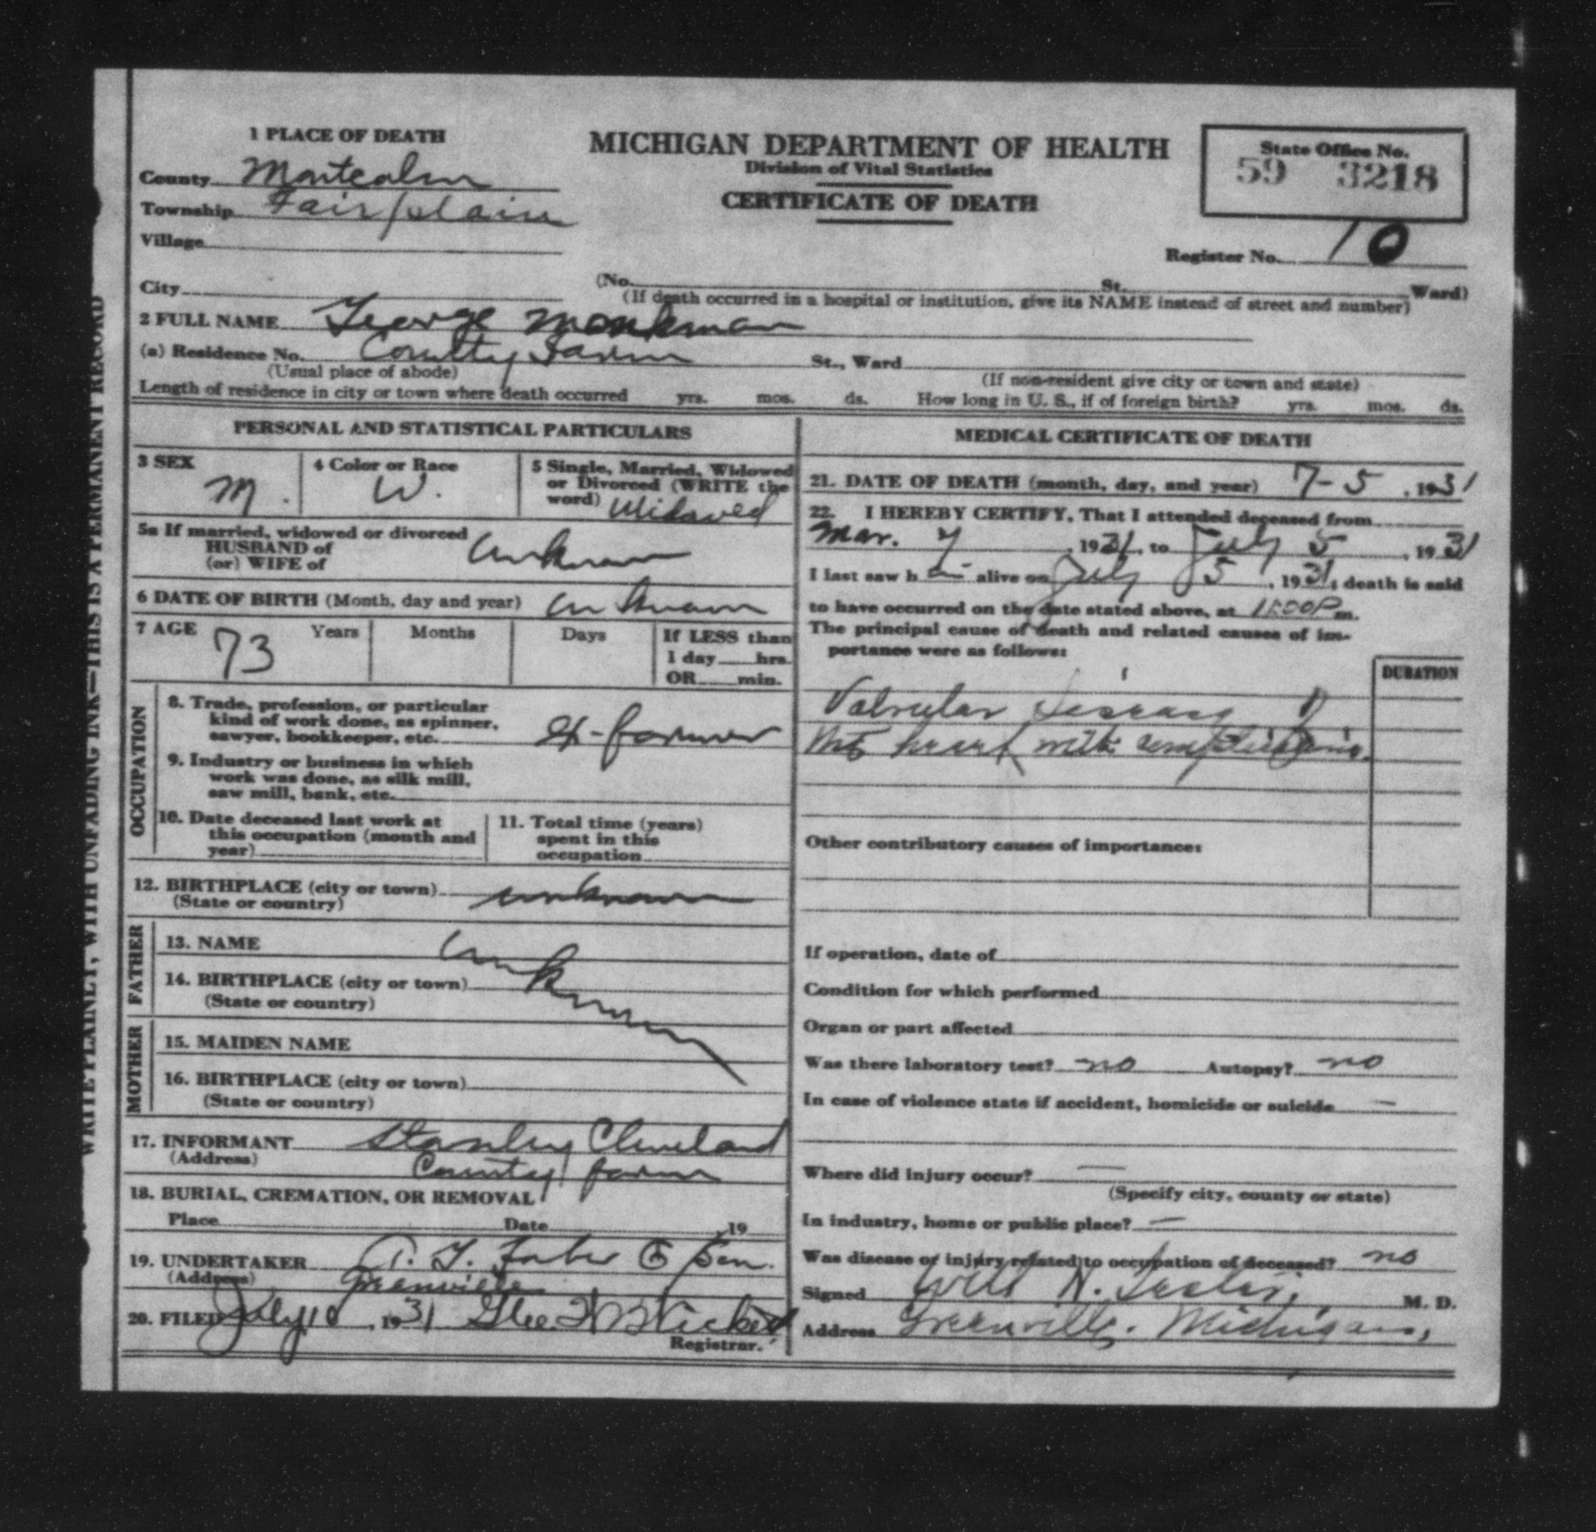 1 PLACE OF DEATH
County Montcalm
Township Fairplain
Village
City
MICHIGAN DEPARTMENT OF HEALTH
Division of Vital Statistics
CERTIFICATE OF DEATH
State Office No.
59 3218
Register No. 10
(No. St. Ward)
(If death occurred in a hospital or institution, give its NAME instead of street and number)
2 FULL NAME George Monkman
(a) Residence No. County Farm St., Ward
(Usual place of abode) (If non-resident give city or town and state)
Length of residence in city or town where death occurred yrs. mos. ds. How long in U. S., if of foreign birth? yrs. mos. ds.
WRITE PLAINLY, WITH UNFADING INK—THIS IS A PERMANENT RECORD
PERSONAL AND STATISTICAL PARTICULARS
3 SEX
M.
4 Color or Race
W.
5 Single, Married, Widowed
or Divorced (WRITE the
word) Widowed
5a If married, widowed or divorced
HUSBAND of
(or) WIFE of
unknown
6 DATE OF BIRTH (Month, day and year) unknown
7 AGE 73 Years Months Days
If LESS than
1 day hrs.
OR min.
OCCUPATION
8. Trade, profession, or particular
kind of work done, as spinner,
sawyer, bookkeeper, etc. ex-farmer
9. Industry or business in which
work was done, as silk mill,
saw mill, bank, etc.
10. Date deceased last work at
this occupation (month and
year)
11. Total time (years)
spent in this
occupation
12. BIRTHPLACE (city or town) unknown
(State or country)
FATHER
13. NAME unknown
14. BIRTHPLACE (city or town)
(State or country)
MOTHER
15. MAIDEN NAME
16. BIRTHPLACE (city or town)
(State or country)
17. INFORMANT Stanley Cleveland
(Address) County farm
18. BURIAL, CREMATION, OR REMOVAL
Place Date 19
19. UNDERTAKER & Son.
(Address) Greenville
20. FILED July 10, 1931 Geo.
Registrar.
MEDICAL CERTIFICATE OF DEATH
21. DATE OF DEATH (month, day, and year) 7-5, 1931
22. I HEREBY CERTIFY, That I attended deceased from
Mar. 7, 1931, to July 5, 1931
I last saw h alive on July 5, 1931; death is said
to have occurred on the date stated above, at m.
The principal cause of death and related causes of im-
portance were as follows:
DURATION
Valvular disease of
the heart with complications.
Other contributory causes of importance:
If operation, date of
Condition for which performed
Organ or part affected
Was there laboratory test? no Autopsy? no
In case of violence state if accident, homicide or suicide —
Where did injury occur? —
(Specify city, county or state)
In industry, home or public place? —
Was disease or injury related to occupation of deceased? no
Signed Will H. M. D.
Address Greenville, Michigan,